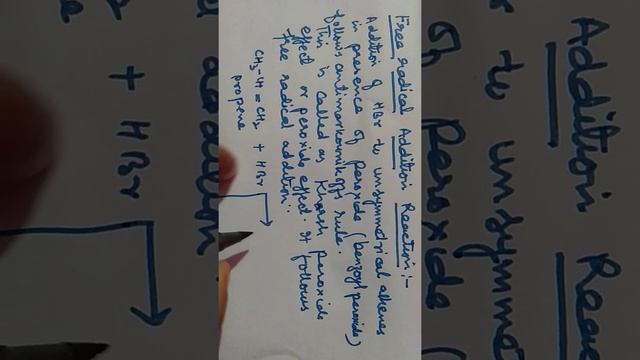 Free radical Addition Reaction:-
Addition of HBr to unsymmetrical alkenes
in presence of peroxide (benzoyl peroxide)
follows antimarkownikoff's rule.
This is called as Kharash peroxide
effect or peroxide effect. It follows
free radical addition.
CH3-CH=CH2 + HBr
propene